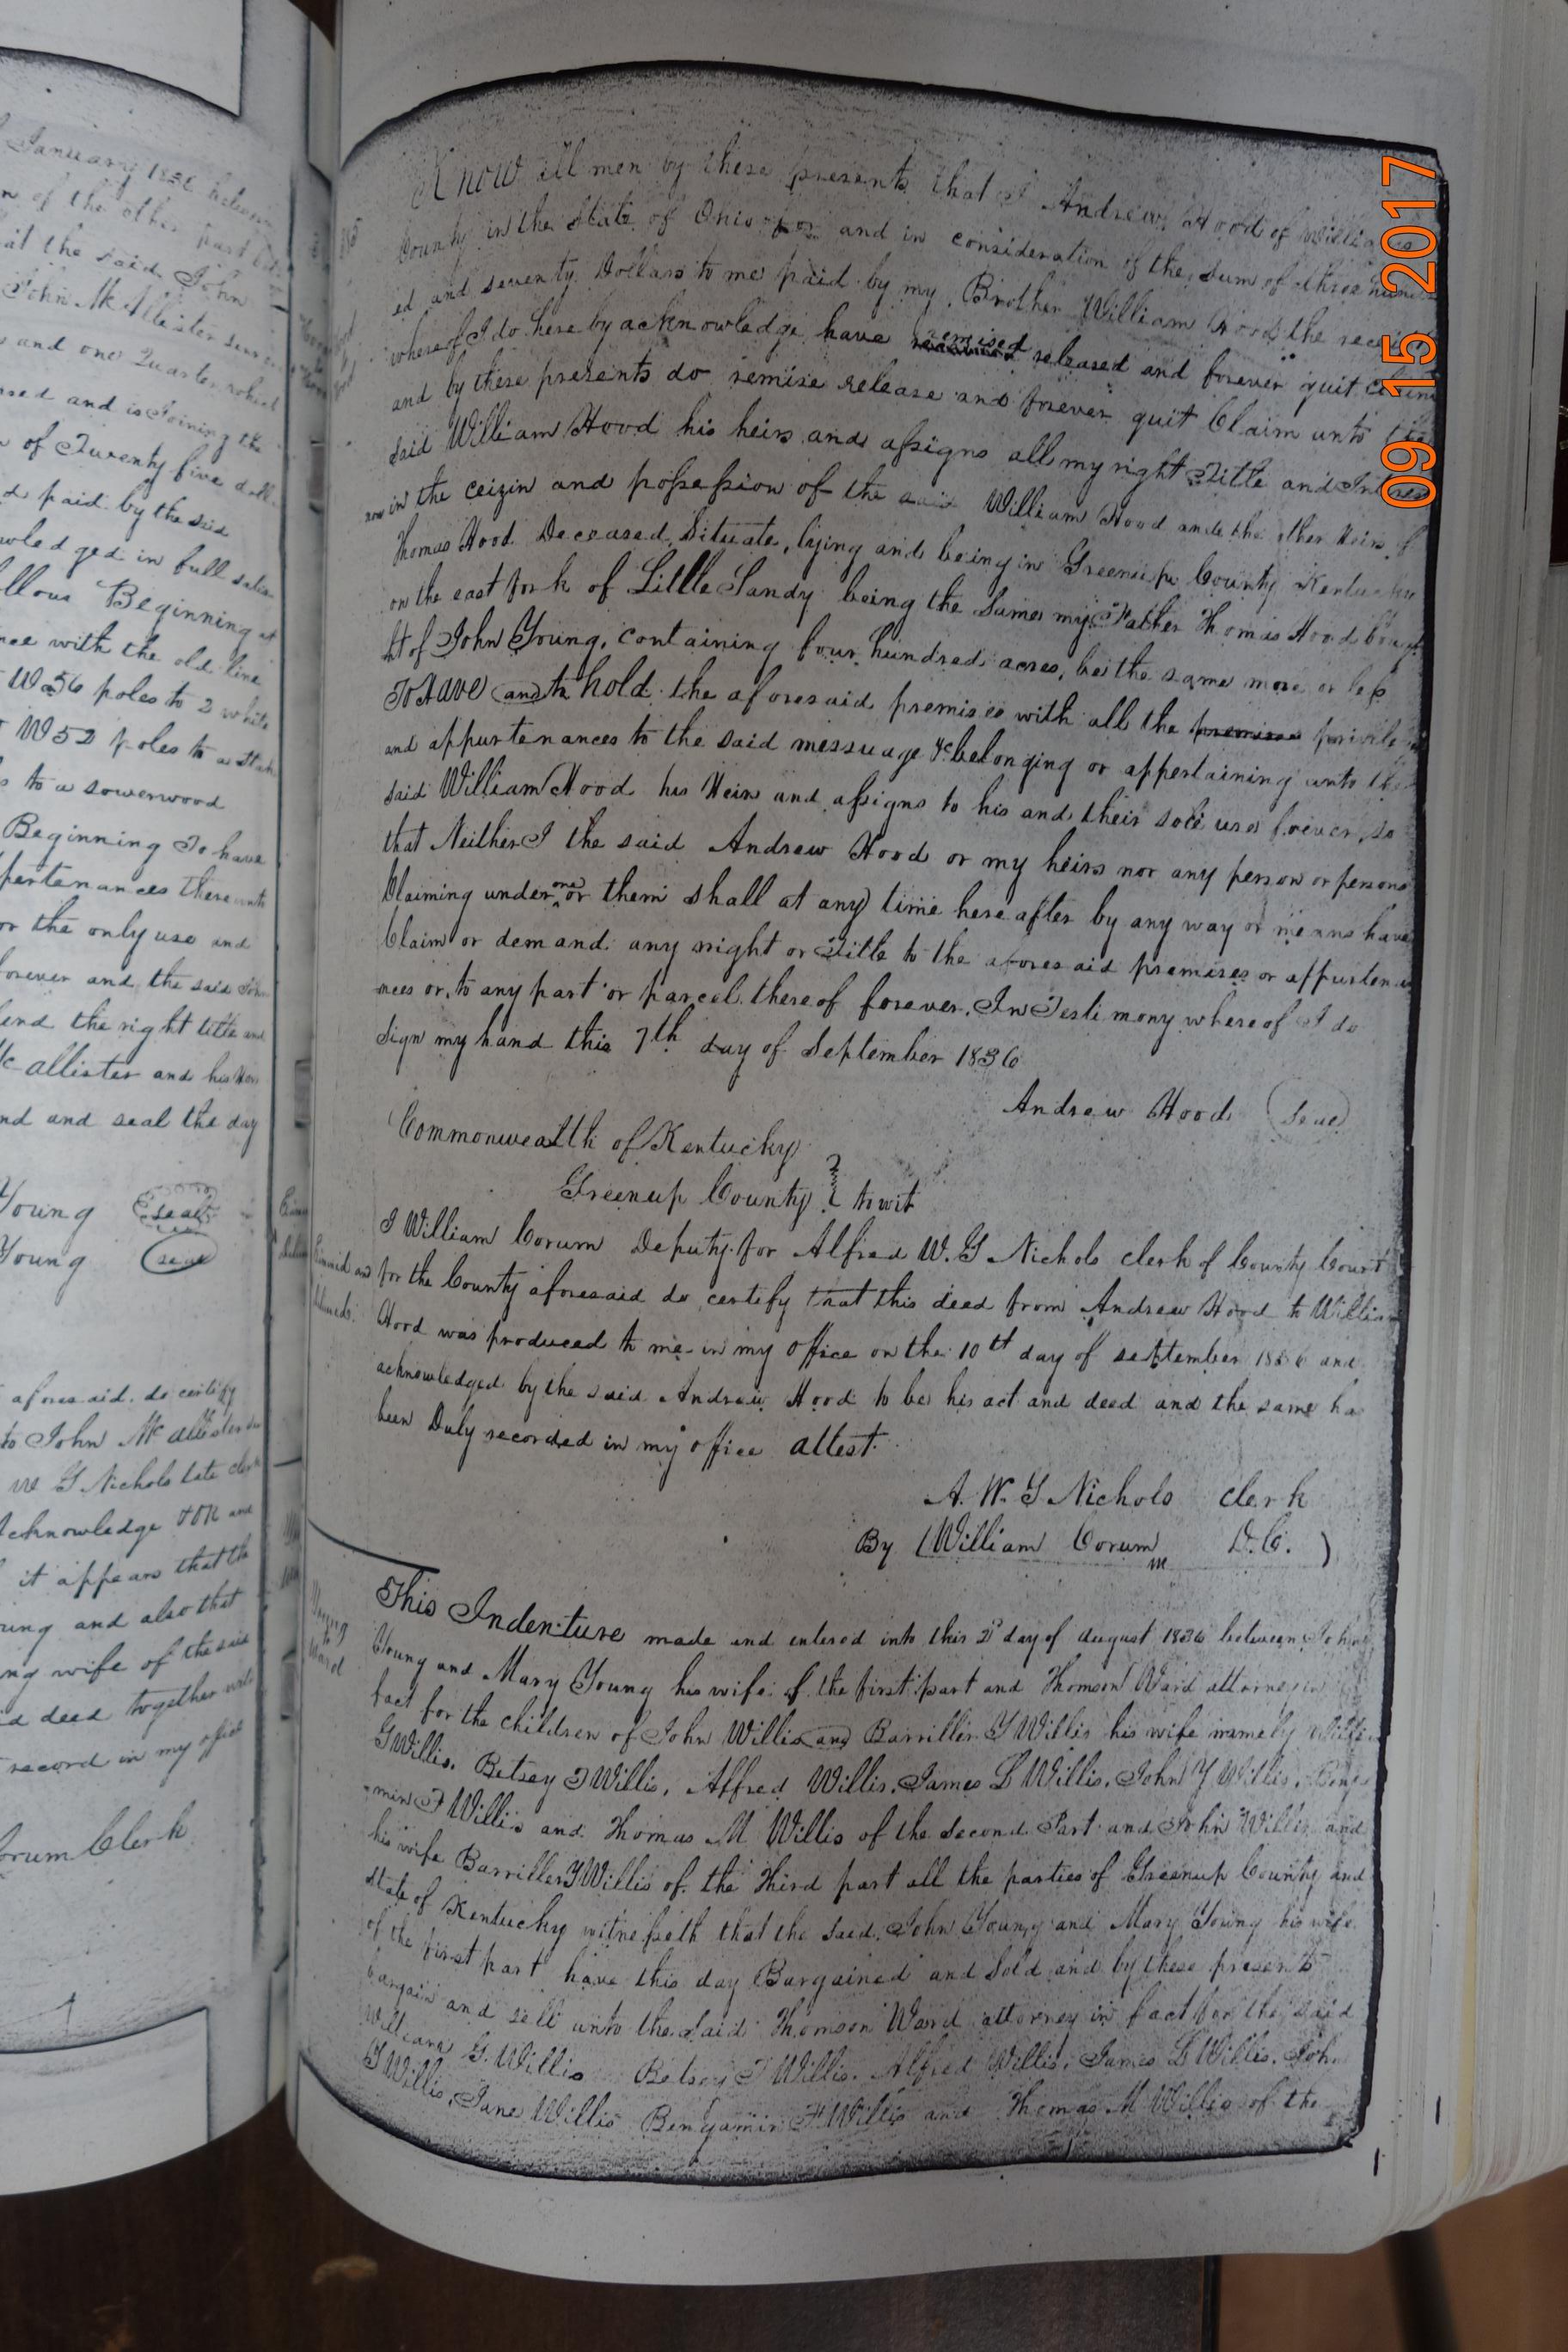 January 1836
of the other part
at the said John
John McAllister
and one Quarter
and is Joining the
of Twenty five
paid by the said
in full
Beginning at
with the old line
W 56 poles to 2 white
W 52 poles to a
to a sowerwood
Beginning To have
or the only use and
forever and the said
the right title and
allister and his
nd and seal the day
Young Seal
Young Seal
aforesaid do certify
to John McAllister
W G Nichols late
acknowledge and
it appears that the
and also that
wife of the said
deed together
record in my office
Clerk
Know all men by these presents that I Andrew Hood of
County in the State of Ohio for and in consideration of the sum of three hund
ed and seventy Dollars to me paid by my Brother William Hood the receipt
whereof I do here by acknowledge have remised released and forever quit claim
and by these presents do remise release and forever quit Claim unto the
said William Hood his heirs and assigns all my right Title and
now in the ceizin and possession of the said William Hood and the other Heirs of
Thomas Hood Deceased, Situate, lying and being in Greenup County Kentucky
on the east fork of Little Sandy being the Same my Father Thomas Hood boug
ht of John Young, containing four hundred acres, be the same more or less
To Have and to hold the aforesaid premises with all the premises
and appurtenances to the said messuage &c belonging or appertaining unto the
said William Hood his Heirs and assigns to his and their sole use forever, so
that Neither I the said Andrew Hood or my heirs nor any person or persons
Claiming under one or them shall at any time here after by any way or means have
Claim or demand any right or Title to the aforesaid premises or appurtena
nces or to any part or parcel thereof forever. In Testimony whereof I do
Sign my hand this 7th day of September 1836
Andrew Hood (Seal)
Commonwealth of Kentucky
Greenup County } to wit
I William Corum Deputy for Alfred W. G Nichols clerk of County Court
for the County aforesaid do certify that this deed from Andrew Hood to William
Hood was produced to me in my office on the 10th day of september 1836 and
acknowledged by the said Andrew Hood to be his act and deed and the same ha
been Duly recorded in my office attest.
A. W. G Nichols clerk
By (William Corum D.C.)
Young
to
Ward
This Indenture made and entered into this day of august 1836 between John
Young and Mary Young his wife of the first part and Thomson Ward attorney in
fact for the children of John Willis and Barriller Y Willis his wife namely
G Willis, Betsey Willis, Alfred Willis, James L Willis, John Y Willis,
min F Willis and Thomas M Willis of the Second Part and John Willis and
his wife Barriller Y Willis of the Third part all the parties of Greenup County and
state of Kentucky witnesseth that the said John Young and Mary Young his wife
of the first part have this day Bargained and Sold and by these presents
bargain and sell unto the said Thomson Ward attorney in fact for the said
William G. Willis Betsey Willis, Alfred Willis, James L Willis, John
Y Willis, Jane Willis Bengamin F Willis and Thomas M Willis of the
09 15 2017